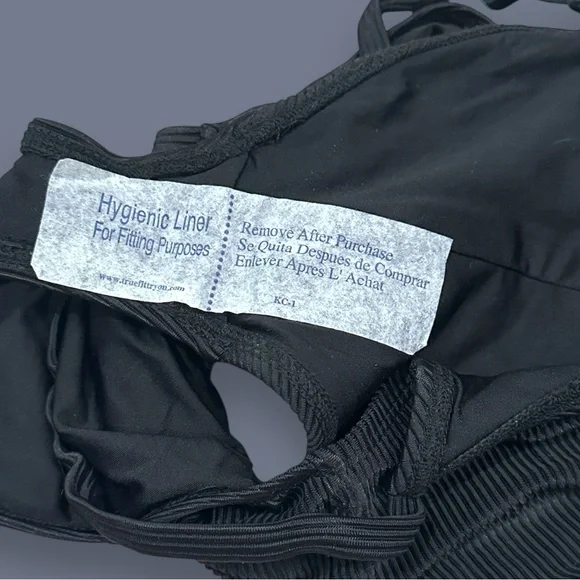 Hygienic Liner
For Fitting Purposes
www.truefittryou.com
Remove After Purchase
Se Quita Despues de Comprar
Enlever Apres L' Achat
KC-1